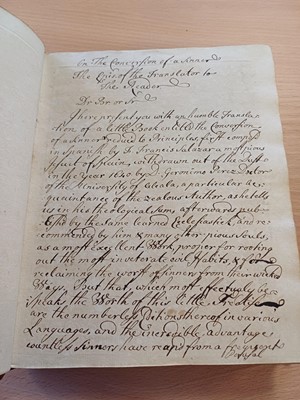 On The Conversion of a Sinner
The Epis: of the Translator to
The Reader
Dr Br or Sr
I here present you with an humble Transla-
tion of a little Book entitled the Conversion
of a Sinner reduced to Principles first composed
in Spanish by F. Francis Salazar a most pious
Jesuit of Spain, with drawn out of the Dust
in the Year 1640 by D. Geronimo Perez Doctor
of the University of Alcala, a particular ac-
quaintance of the zealous Author, as he tells
us in his theological Sum, afterwards pub-
lish'd by this same learned Ecclesiastick, and re-
commended by him to many other pious Souls,
as a most Excellent Work, proper for rooting
out the most inveterate evil habits, & for
reclaiming the worst of sinners from their wicked
Ways. But that, which most effectualy be
speaks, the Worth of this little Treatise
are the numberless Editions thereof in various
Languages, and the incredible advantage
countless Sinners have reap'd from a frequent
Perusal